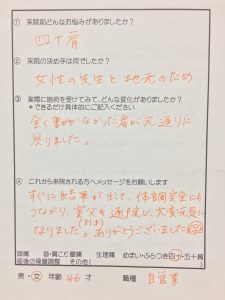 ① 来院前どんなお悩みがありましたか？
四十肩
② 来院の決め手は何でしたか？
女性の先生と地元のため
③ 実際に施術を受けてみて、どんな変化がありましたか？
＊できるだけ具体的にご記入ください
全く動かなかった肩が元通りに
戻りました。
④ これから来院される方へメッセージをお願いします
すぐに効果が出て、体調管理にも
つながり、実父も通院し、大変元気に
(81才)
なりました。ありがとうございました
頭痛 首・肩こり 腰痛 生理痛 めまい・ふらつき 四十・五十肩
産後の骨盤調整 その他（ ）
男・女 年齢 46才 職種 自営業